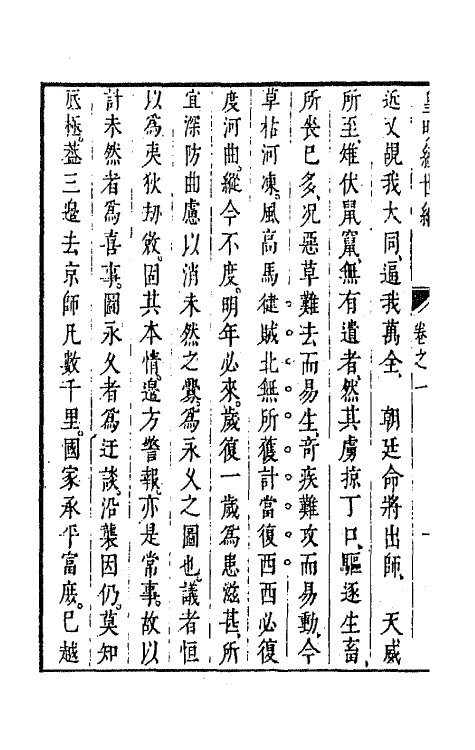 皇明經世編 卷之一 一
近又覘我大同、逼我萬全、 朝廷命將出師、 天威
所至、雉伏鼠竄、無有遺者、然其虜掠丁口、驅逐生畜、
所喪已多、况惡草難去而易生、奇疾難攻而易動、今
草枯河凍。風高馬健賊北無所獲計當復西西必復
度河曲。縱今不度。明年必來。歲復一歲為患滋甚。所
宜深防曲慮以消未然之釁。為永久之圖也。議者恒
以為夷狄刼效。固其本情。邊方警報。亦是常事。故以
計未然者為喜事。圖永久者為迂談。沿襲因仍。莫知
底極。葢三邊去京師凡數千里。國家承平富庻。已越